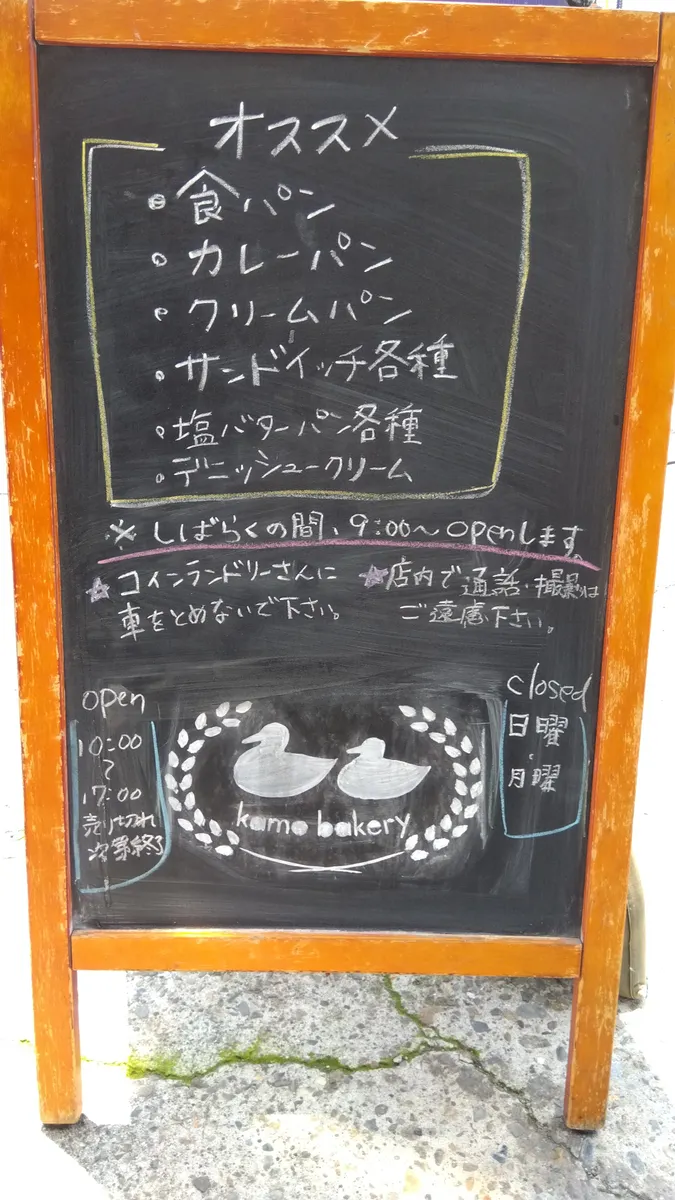 オススメ
・食パン
・カレーパン
・クリームパン
・サンドイッチ各種
・塩バターパン各種
・デニッシュークリーム
※しばらくの間、9:00〜openします。
☆コインランドリーさんに
車をとめないで下さい。
☆店内で通話・撮影は
ご遠慮下さい。
open
10:00
〜
17:00
売り切れ
次第終了
kamo bakery
closed
日曜
・
月曜